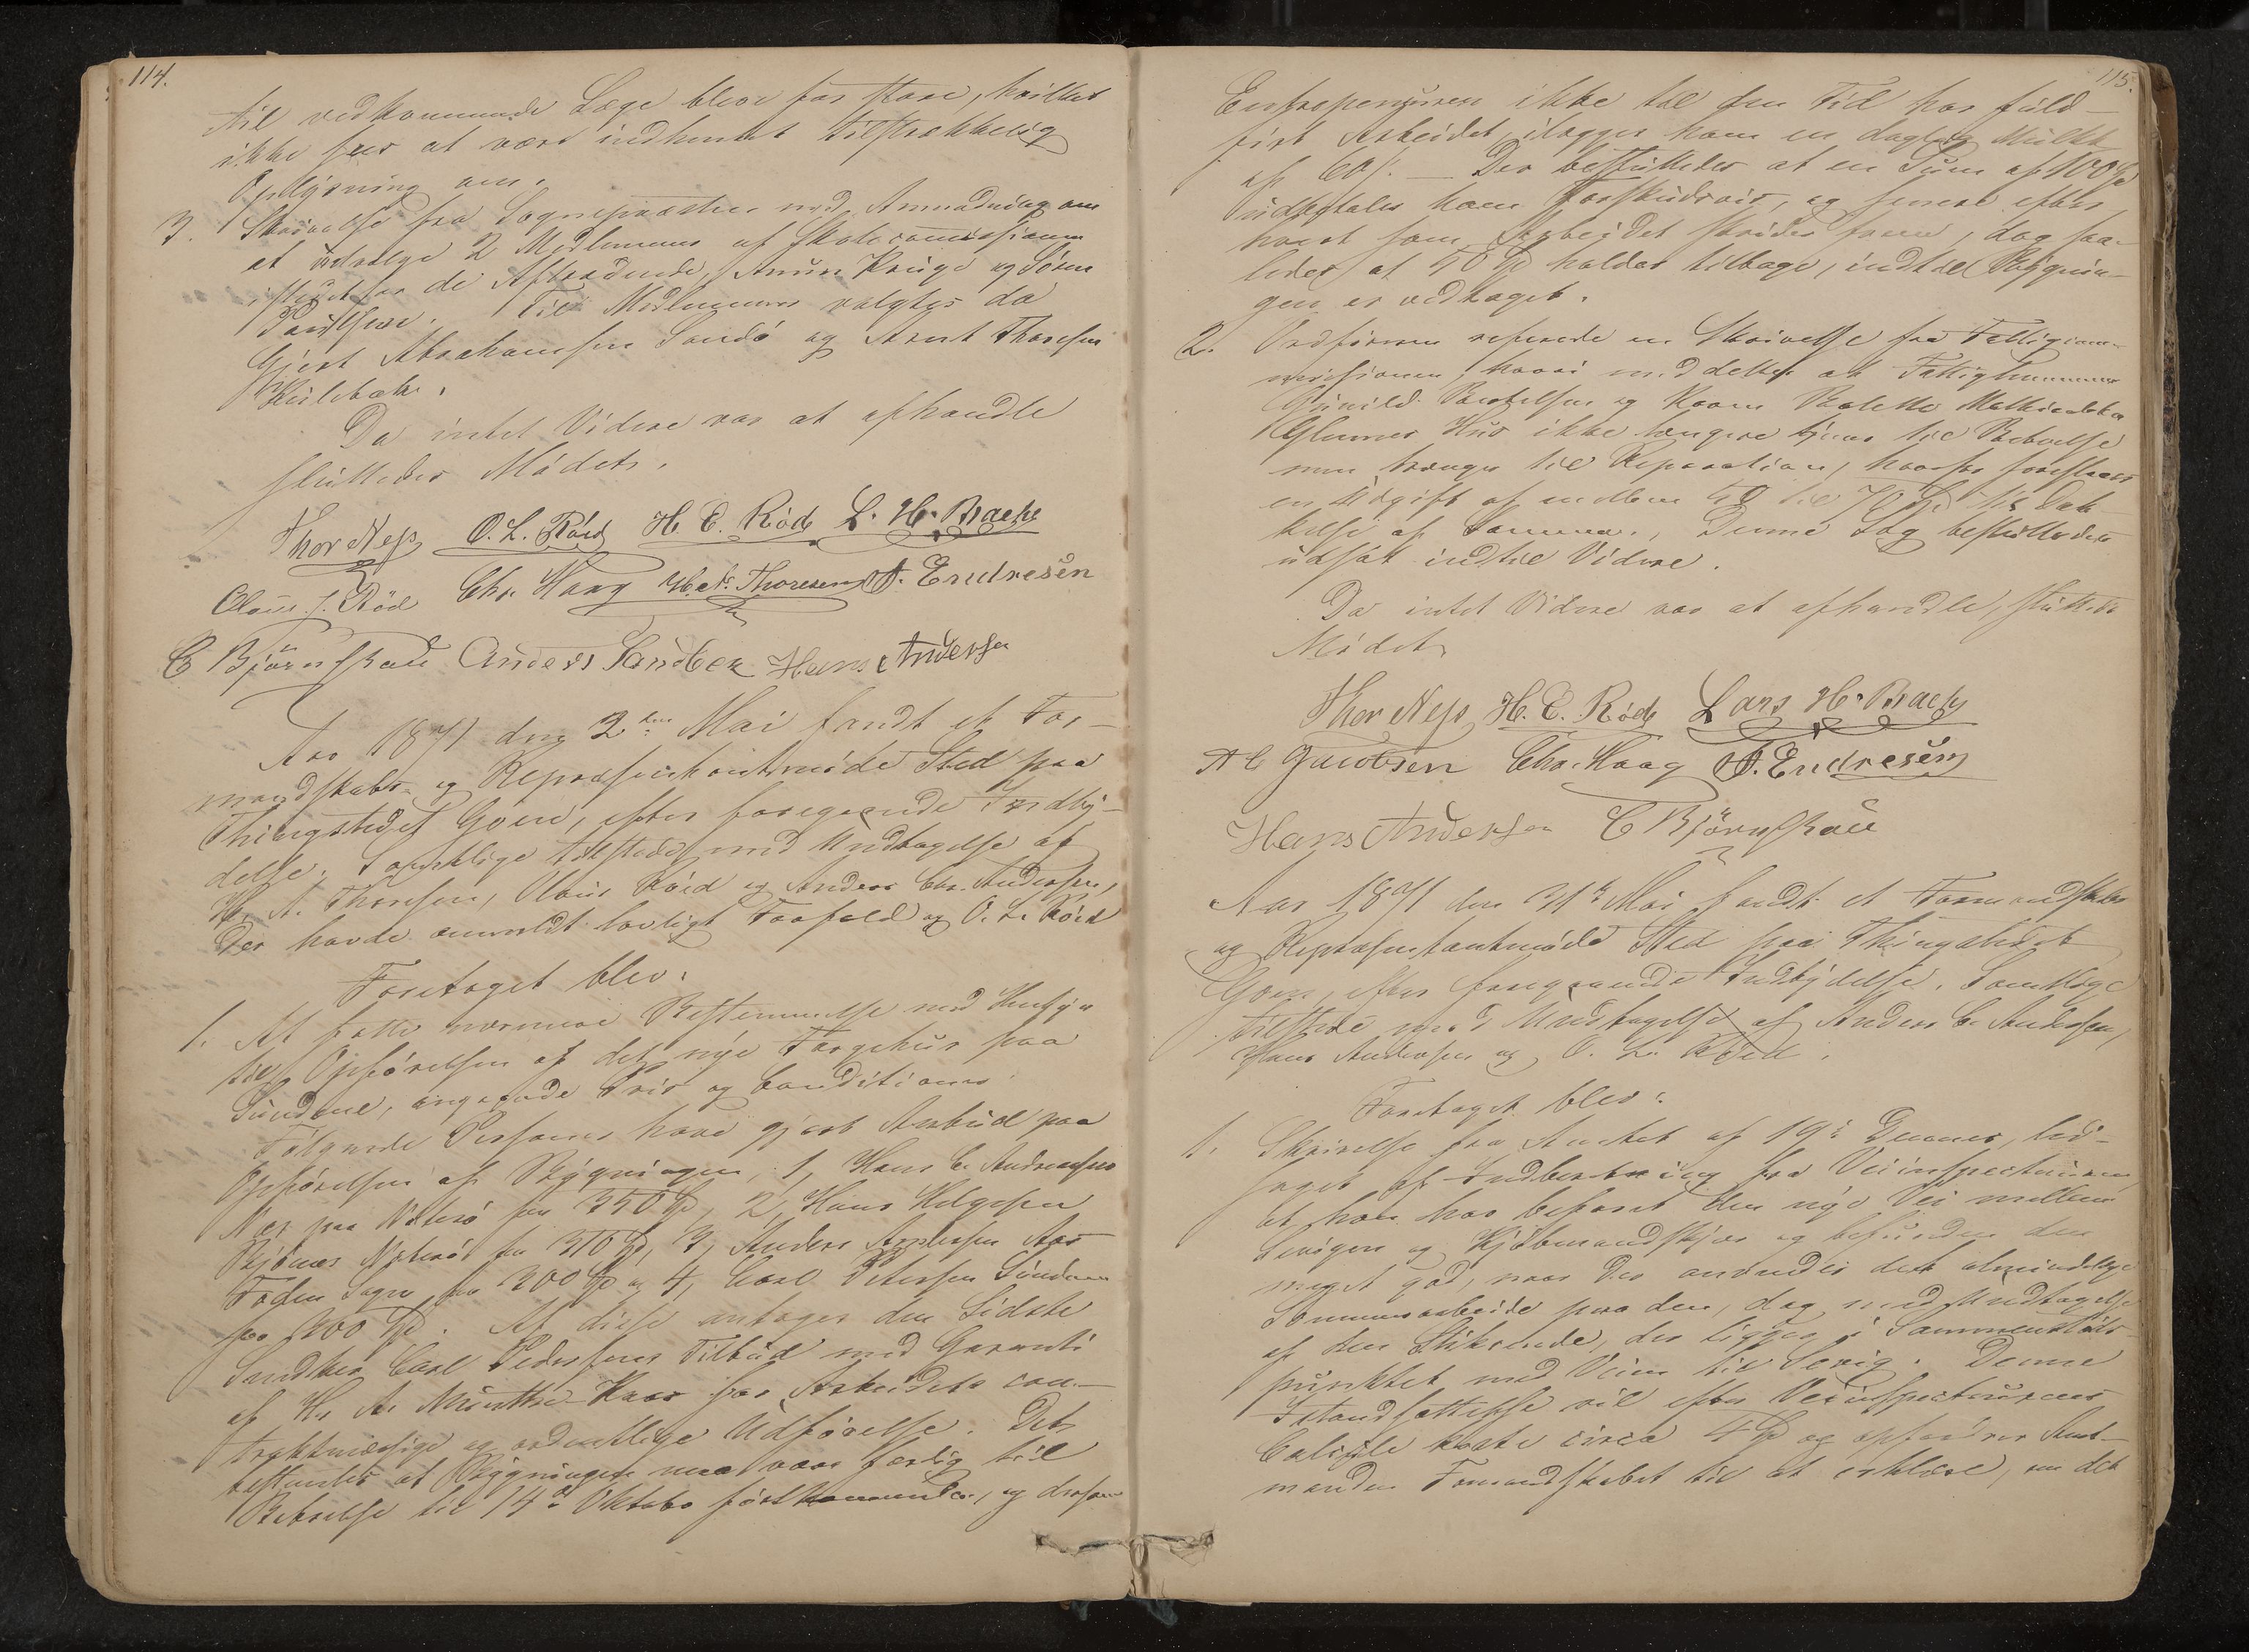 114.
til vedkommende Læge bleve for store, hvilket
ikke sees at være indhentet tilstrækkelig
Oplysning om.
3. Skrivelse fra Sognepræsten med Anmodning om
at udvælge 2 Medlemmer af Skolecomissionen
istedetfor de Aftrædende, Kruge og Søren
Paulsen. Til Medlemmer valgtes da
Gjert Abrahamsen Sandö og Arent Thoresen
Da intet Videre var at afhandle
sluttedes Mödet.
Thor Næss O. L. Röed H. E. Röd L. H. Bache
Olaus J. Röd Chr. Haag H. A. Thoresen A. Endresen
C Björnskau Anders Sandbek Hans Andersen
Aar 1871 den 2den Mai fandt et For-
mandskabs- og Repræsentantmöde Sted paa
Thingstedet Goen, efter foregaaende Indby-
delse. Samtlige tilstede med Undtagelse af
H. A. Thoresen, Olaus Röed og Anders Chr. Andersen,
Der havde anmeldt lovligt Forfald og O. L. Röed
Foretaget blev:
1. At fatte nærmere Bestemmelse med Hensyn
til Opförelsen af det nye Færgehus paa
Sundene, angaaende Pris og Conditioner.
Fölgende Personer have gjort Anbud paa
Opförelsen af Bygningen, 1, Hans C. Andreassen
Næs paa Nöterö for 350 Spd, 2, Hans Helgesen
Nöterö for 310 Spd, 3, Anders Andersen Aas
Sogn for 300 Spd og 4, Carl Petersen Sundene
for 200 Spd. Af disse antages den Sidste
Snedker Carl Pedersens Tilbud med Garanti
af H. A. Münthe-Kaas for Arbeidets con-
traktmæssige og ordentlige Udförelse. Det
bestemtes at Bygningen maa være færdig til
Beboelse til 14de Oktober förstkommende, og dersom
115.
Entrepenören ikke til den Tid har fuld-
fört Arbeidet, ilægges ham en daglig Mülkt
af 60 s. — Der besluttedes at en Sum af 100 Spd
udbetales ham Forskudsvis, og senere efter
hvert som Arbeidet skrider frem, dog saa-
ledes at 50 Spd holdes tilbage, indtil Bygnin-
gen er vedtaget.
2. Ordföreren refererede en Skrivelse fra Fattigcom-
missionen, hvori meddeles at Fattiglemmerne
Gunild Bertelsen og Karen
Hus ikke længere tjener til Beboelse
men trænger til Reparation, hvorfor foreslaaes
en Udgift af mellem 50 til 70 Spd til Dæk-
kelse af Samme. Denne Sag besluttedes
udsat indtil Videre.
Da intet Videre var at afhandle, sluttedes
Mödet.
Thor Næss H. E. Röd Lars H. Bache
A C Jacobsen Chr. Haag A. Endresen
Hans Andersen C Björnskau
Aar 1871 den 31te Mai fandt et Formandskabs
og Repræsentantmöde Sted paa Thingstedet
Goen, efter foregaaende Indbydelse. Samtlige
tilstede med Undtagelse af Anders C. Andersen,
Hans Andersen og O. L. Röed.
Foretaget blev:
1. Skrivelse fra Amtet af 19de Dennes, led-
saget af Indberetning fra Veiinspecteuren,
at han har befaret den nye Vei mellem
og Kjöbmandskjær og befunden den
meget god, naar der anvendes det almindelige
Sommerarbeide paa den, dog med Undtagelse
af den Stikrende, der ligger i Sammenstöds-
punktet med Veien til . Denne
Istandsættelse vil efter Veiinspecteurens
Calcule koste circa 4 Spd og opfordrer Amt-
manden Formandskabet til at erklære, om det